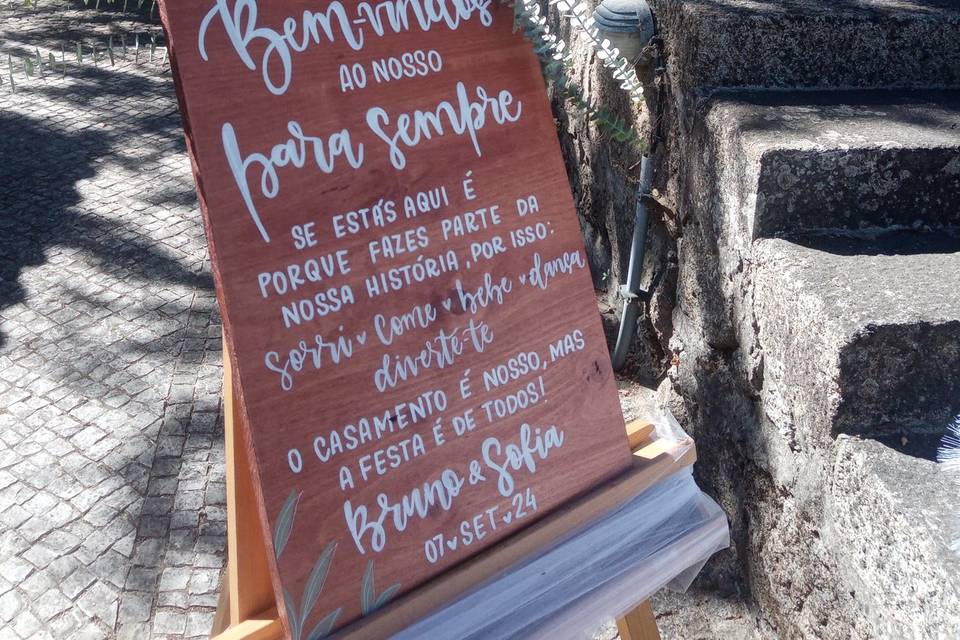 Bem-vindos
AO NOSSO
para sempre
SE ESTÁS AQUI É
PORQUE FAZES PARTE DA
NOSSA HISTÓRIA, POR ISSO:
Sorri ♥ Come ♥ bebe ♥ dança
diverte-te
O CASAMENTO É NOSSO, MAS
A FESTA É DE TODOS!
Bruno & Sofia
07 ♥ SET ♥ 24